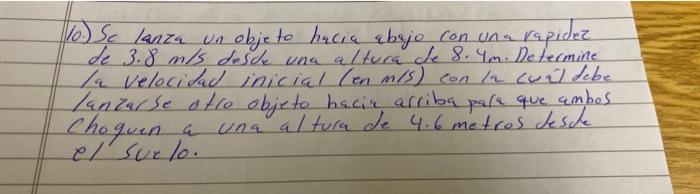 10.) Se lanza un objeto hacia abajo con una rapidez
de 3.8 m/s desde una altura de 8.4m. Determine
la velocidad inicial (en m/s) con la cuál debe
lanzarse otro objeto hacia arriba para que ambos
choquen a una altura de 4.6 metros desde
el suelo.